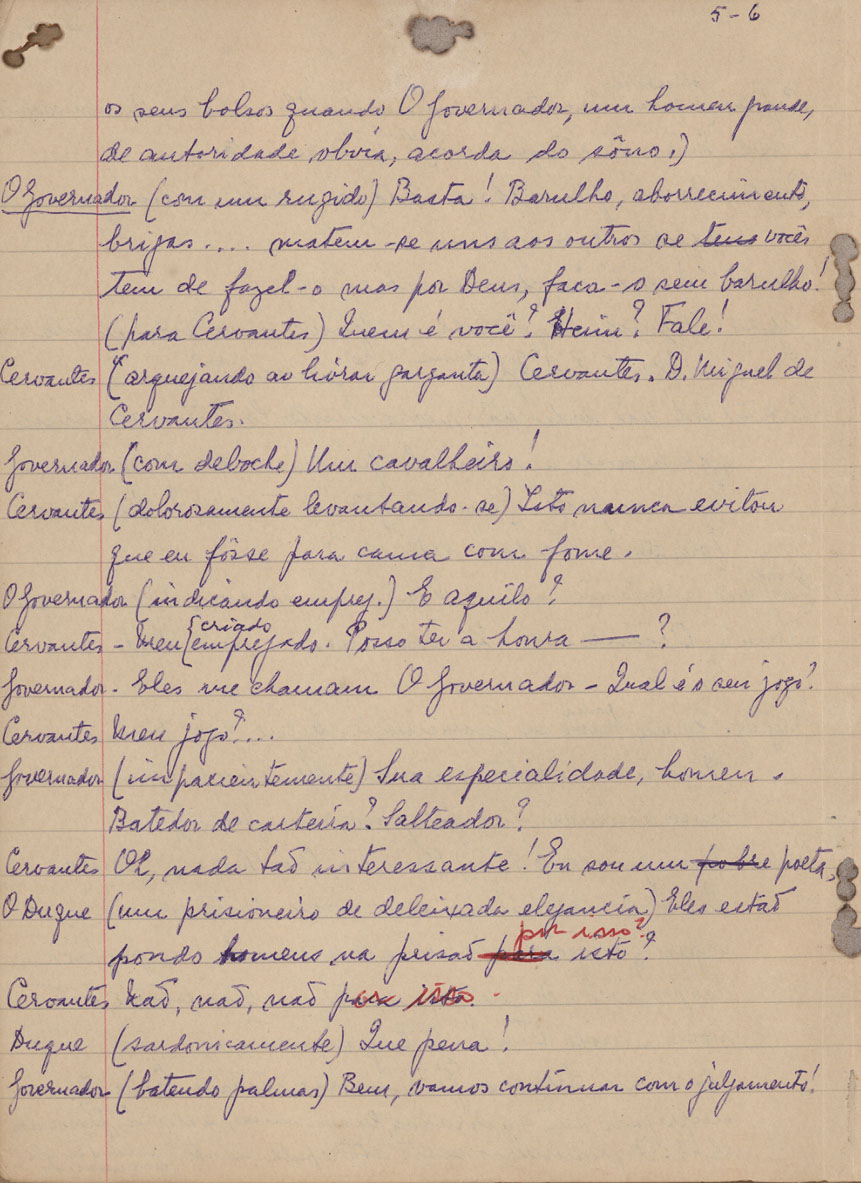 5-6
os seus bolsos quando O Governador, um homem grande,
de autoridade obvia, acorda do sôno.)
O Governador (com um rugido) Basta! Barulho, aborrecimento,
brigas.... matem-se uns aos outros se tens vocês
tem de fazel-o mas por Deus, faca-o sem barulho!
(para Cervantes) Quem é você? Hein? Fale!
Cervantes (arquejando ao livrar garganta) Cervantes. D. Miguel de
Cervantes.
Governador (com deboche) Um cavalheiro!
Cervantes (dolorosamente levantando-se) Isto nunca evitou
que eu fôsse para cama com fome.
O Governador (indicando empreg.) E aquilo?
criado
Cervantes - Meu {empregado. Posso ter a honra — ?
Governador - Eles me chamam O Governador - Qual é o seu jogo?
Cervantes Meu jogo?...
Governador (impacientemente) Sua especialidade, homem.
Batedor de carteira? Salteador?
Cervantes Oh, nada tão interessante! Eu sou um pobre poeta.
O Duque (um prisioneiro de deleixada elegancia) Eles estão
por isso?
pondo homens na prisão para isto?
Cervantes Não, não, não por isso.
Duque (sardonicamente) Que pena!
Governador (batendo palmas) Bem, vamos continuar com o julgamento!